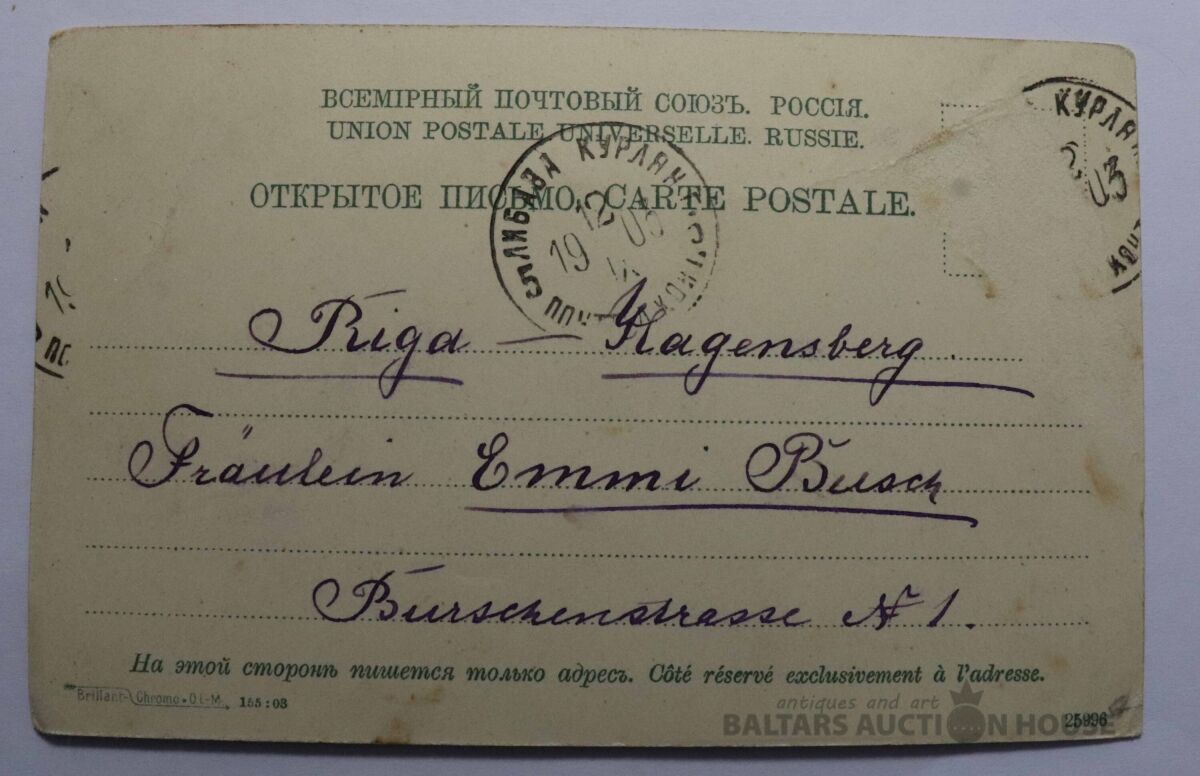 ВСЕМІРНЫЙ ПОЧТОВЫЙ СОЮЗЪ. РОССІЯ.
UNION POSTALE UNIVERSELLE. RUSSIE.
ОТКРЫТОЕ ПИСЬМО. CARTE POSTALE.
ЛИБАВА КУРЛЯН
12
19 03
КУРЛЯН
03
Riga — Hagensberg.
Fräulein Emmi Busch
Burschenstrasse № 1.
На этой сторонѣ пишется только адресъ. Côté réservé exclusivement à l'adresse.
Brillant-Chromo. O.L-M. 155:03
25996
antiques and art
BALTARS AUCTION HOUSE